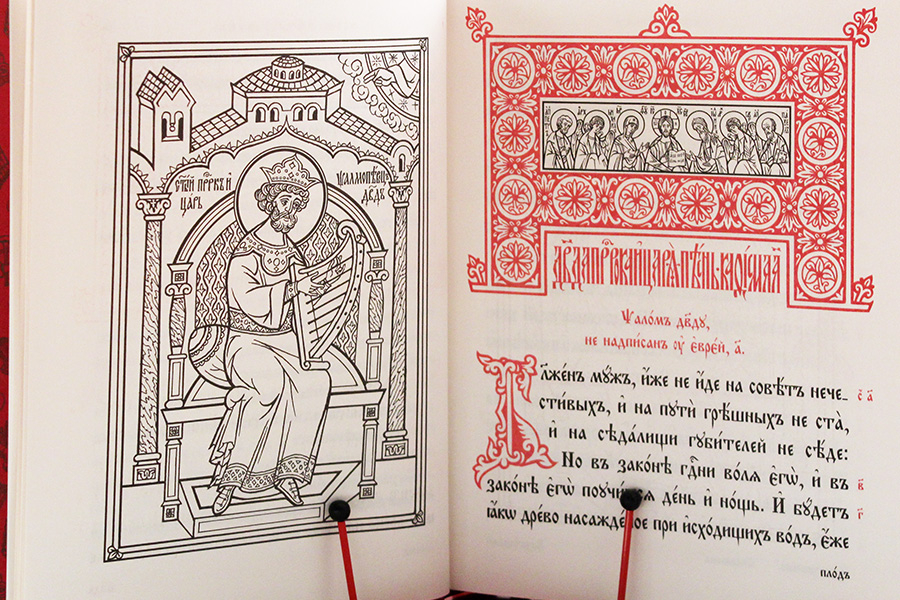 СТЫ́Й ПРРО́КЪ И҆
ЦА́РЬ
ѰАЛМОПѢ́ВЕЦЪ
ДВ҃ДЪ
ДВ҃ДА ПРРО́КА И҆ ЦАРѦ̀ ПѢ́СНЬ. КАѲІ́СМА А҃
Ѱало́мъ дв҃ду,
не надписан ᲂу҆ є҆вре́й, а҃.
Бл҃же́нъ мꙋ́жъ, и҆́же не и҆́де на совѣ́тъ нече-
сти́выхъ, и҆ на пꙋтѝ грѣ́шныхъ не ста̀,
и҆ на сѣда́лищи гꙋби́телей не сѣ́де:
Но въ зако́нѣ гд҃ни во́лѧ є҆гѡ̀, и҆ въ
зако́нѣ є҆гѡ̀ поꙋчи́тсѧ де́нь и҆ но́щь. И҆ бꙋ́детъ
ꙗ҆́кѡ дре́во насажде́ное при и҆схо́дищихъ во́дъ, є҆́же
пло́дъ